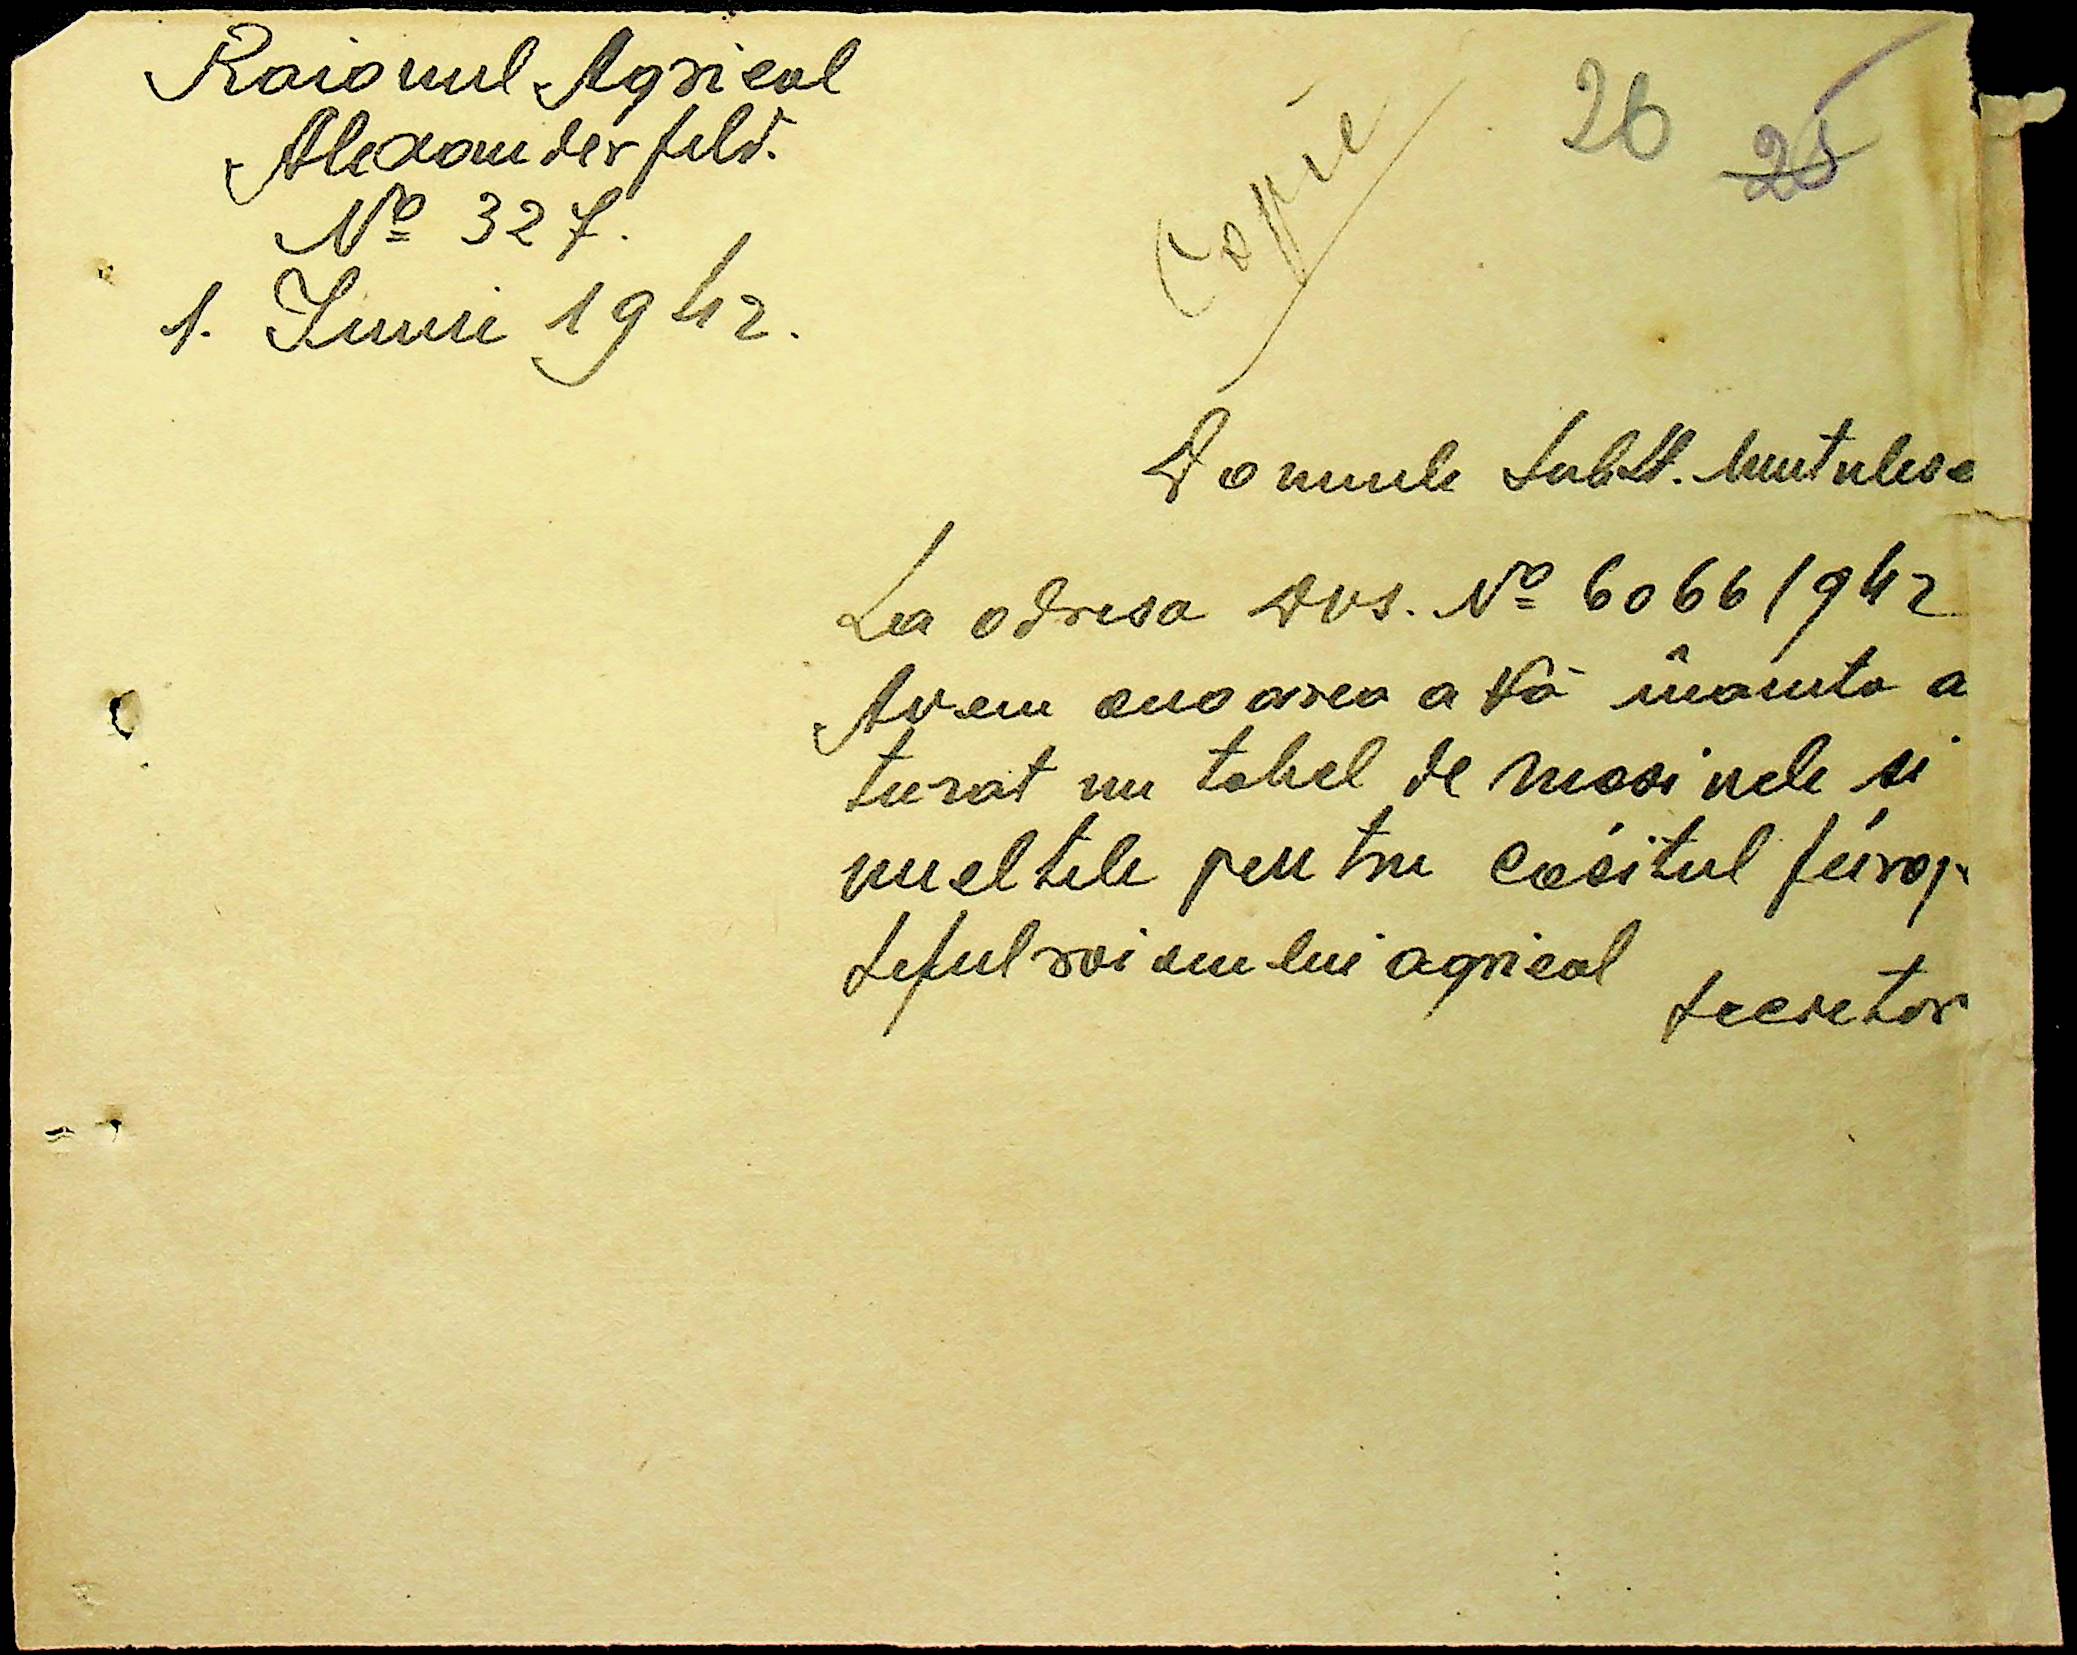 Raionul Agricol
Alexanderfeld.
Nº 327.
1. Iunie 1942.
Copie
26
25
Domnule Sublt.
La adresa Dvs. Nº 6066/942
Avem onoarea a Vă înainta a
turat un tabel de masinele si
uneltele pentru cositul
Seful raionului agricol
Secretar